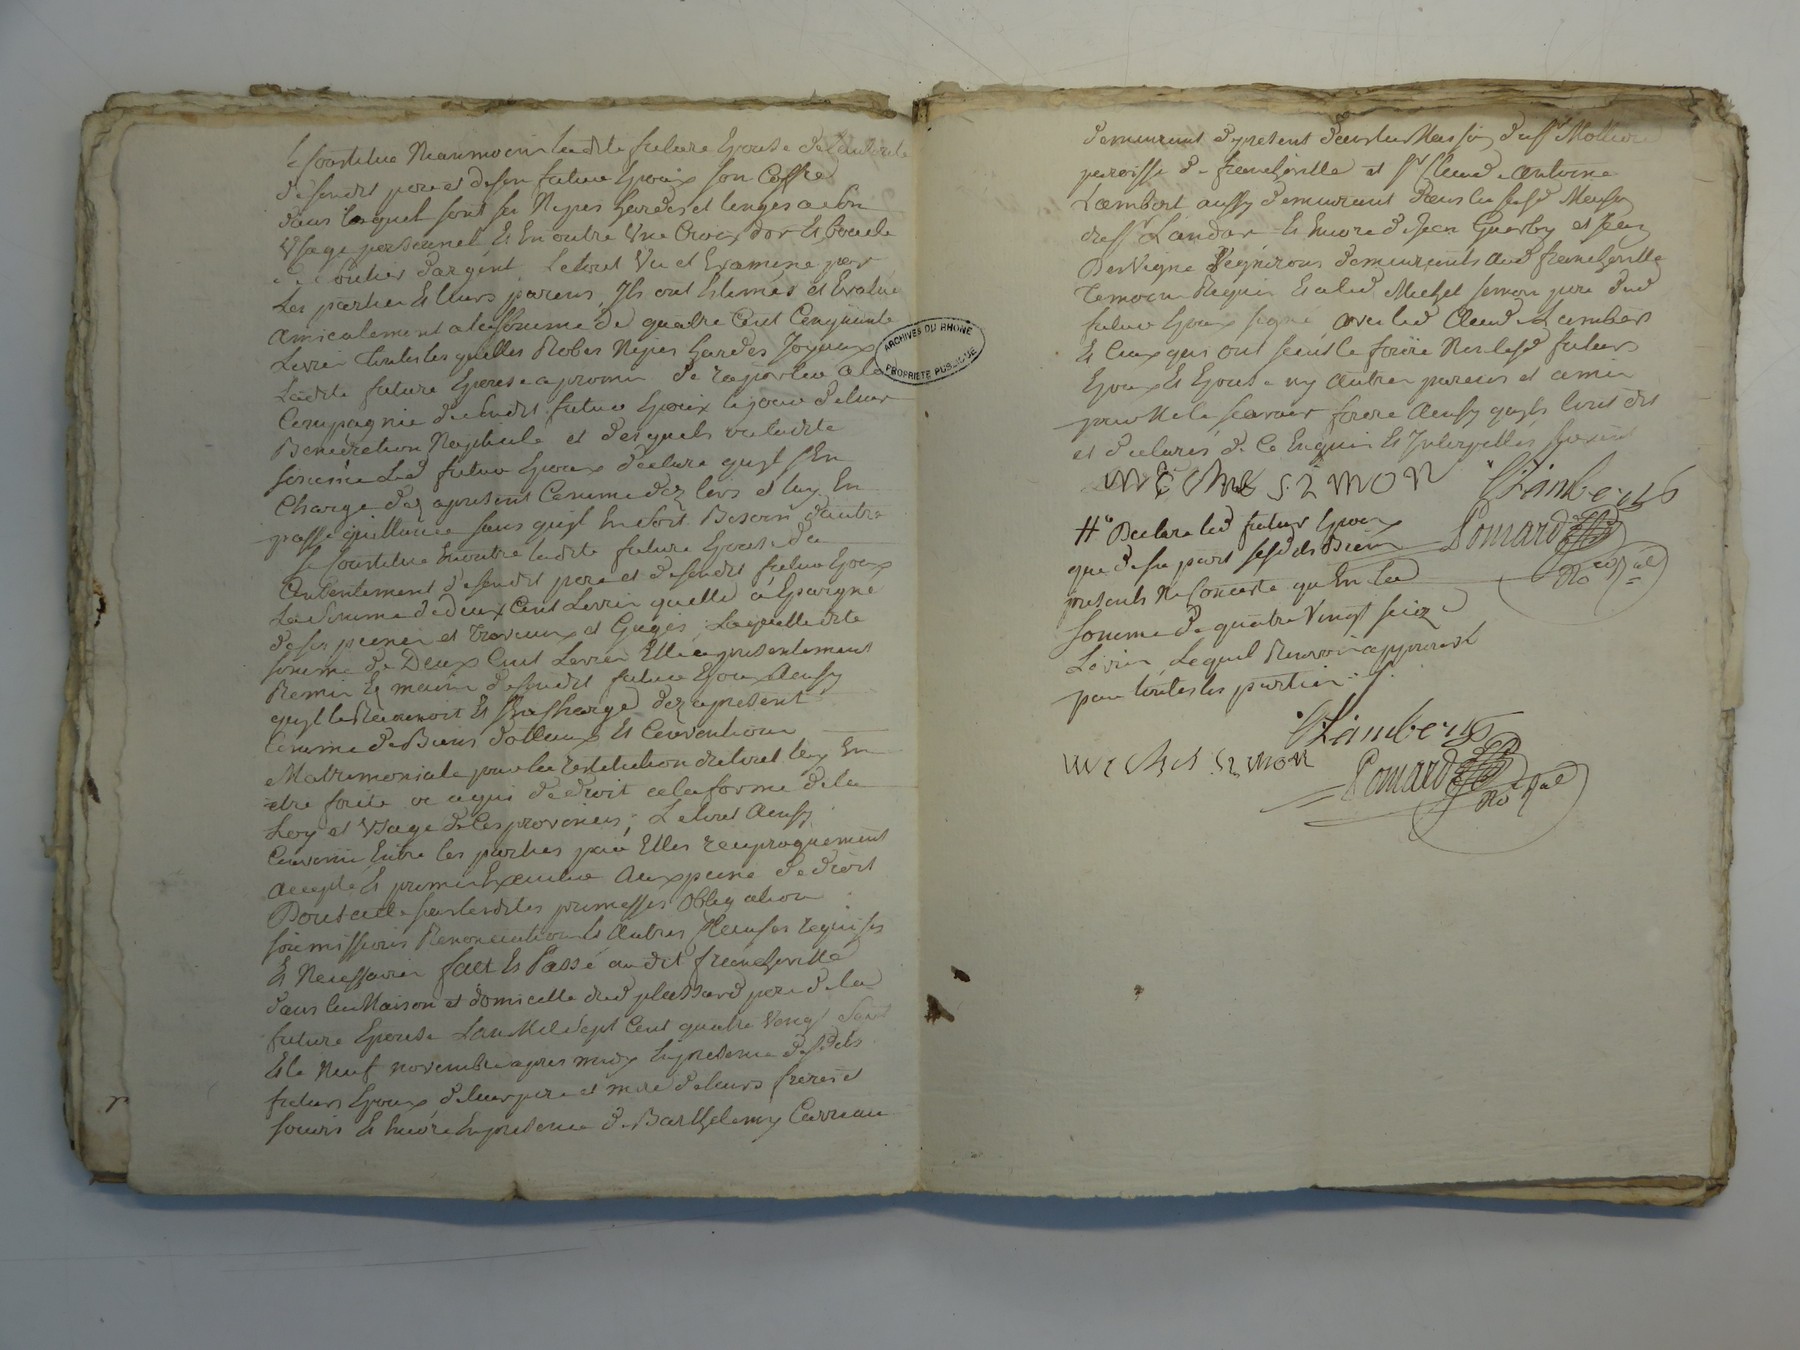 Se constitue Neanmoins ladite future Epouse de l'autorité
desondit pere et deson futur Epoux son Coffre
dans lequel sont ses Nipes hardes et linges a son
Usage personnel Et En outre Une Croix d'or Et boucle
de Soulier d'argent Le tout Vu et Examiné par
Les parties Et leurs parens, Ils ont Estimés et Evalué
amicalement a la Somme de quatre Cent Cinquante
Livres toutes lesquelles Robes Nipes hardes Joyaux
Ladite future Epouse a promis de raporter a la
Compagnie de sondit futur Epoux le jour de leur
Benediction Nuptiale et desquels en ladite
somme Led futur Epoux declare quyl s'En
Charge dez apresent Comme dez lors et luy En
passe quittance sans quyl En soit Besoin d'autre
Se Constitue Enoutre ladite future Epouse du
Consentement de sondit pere et de sondit futur Epoux
La Somme de Deux Cent Livres quelle à Epargné
de ses peines et travaux et Gages, Laquelle dite
somme de Deux Cent Livres Elle a presentement
Remis Es mains de sondit futur Epoux Aussy
quyl le Reconnoit Et s'En charge dez apresent
Comme de Biens dotteaux Et Convention
Matrimoniale pour la restitution du tout luy En
etre faite ou a qui de droit a la forme de la
Loy et Usage de Ces provinces; Le tout Aussy
Convenu Entre les parties par Elles reciproquement
accepté Et promis Executer Aux peine de droit
Dont acte sous lesdites promesses Obligation
soumissions Renonciation Et Autres Clauses requises
Et Necessaires fait Et Passé audit francheville
dans la Maison et domicille dud plassard pere de la
future Epouse Lan Mil Sept Cent quatre Vingt Sept
Et le Neuf novembre apres midy En presence desdits
futurs Epoux de leur pere et mere de leurs freres et
soeurs Et Encore En presence de Barthelemy Carreau
demeurant apresent dans la Maison du sr
paroisse de francheville et sr Claude Antoine
Lambert aussy demeurant dans la
du sr Landar Et Encore de Jean et Jean
Desvigne Vignerons demeurants aud francheville
Temoins Requis Et aled Michel Simon pere dud
futur Epoux signé avec led Claude Lambert
Et Ceux qui ont sceut le faire Non lesd futurs
Epoux Et Epouse ny autres parens et amis
pour Ne le scavoir faire Aussy quyls lont dit
et declarés de Ce Enquis Et Interpellés
MECHEL SIMON CLambert
# Declare led futur Epoux Pomard
que de sa part sesdits Biens No Ral
presents Ne Consiste qu'En la
somme de quatre Vingt seize
Livres, Lequel Renvoi approuvé
pour toutes les parties ./.
CLambert
MECHEL SIMON Pomard
No Ral
ARCHIVES DU RHONE
PROPRIETE PUBLIQUE